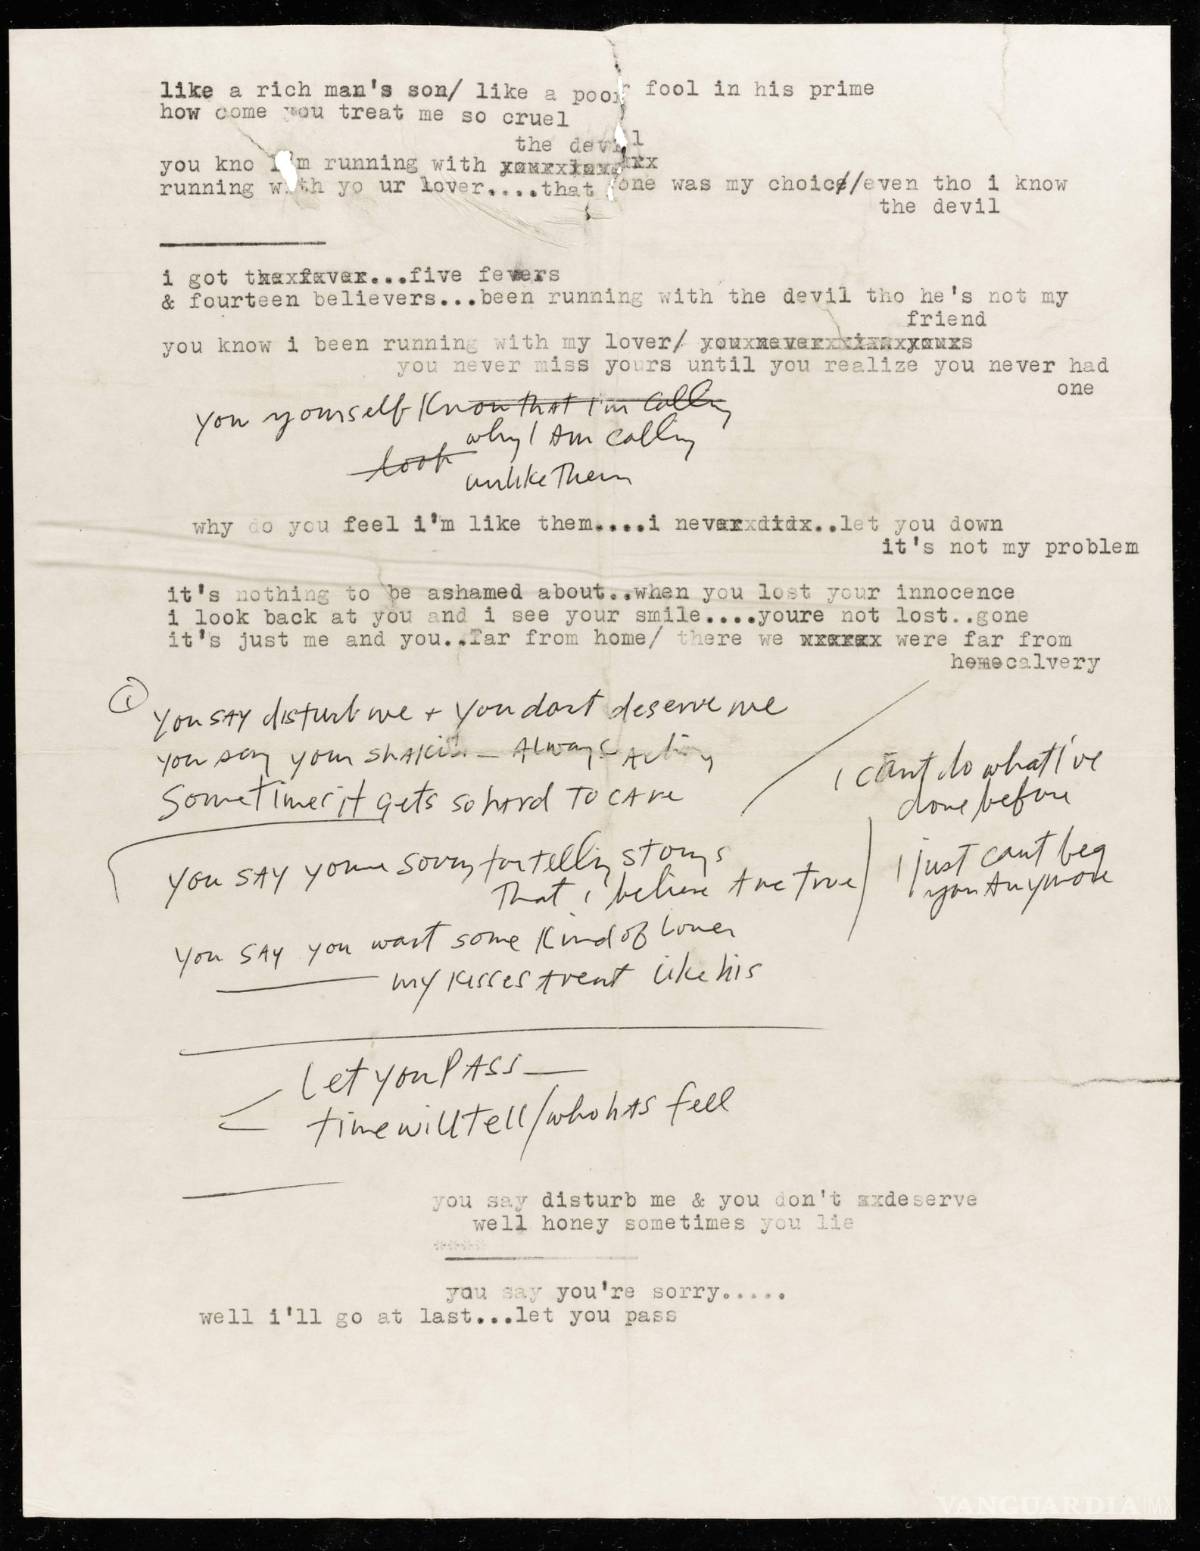 like a rich man's son/ like a poor fool in his prime
how come you treat me so cruel
the devil
you kno i'm running with
running with yo ur lover....that one was my choice//even tho i know
the devil
i got thexfever...five fevers
& fourteen believers...been running with the devil tho he's not my
friend
you know i been running with my lover/
you never miss yours until you realize you never had
one
you yourself know that i'm calling
why I Am calling
look
unlike Them
why do you feel i'm like them....i neverxdidx..let you down
it's not my problem
it's nothing to be ashamed about..when you lost your innocence
i look back at you and i see your smile....youre not lost..gone
it's just me and you..far from home/ there we were far from
homecalvery
①
you SAY disturb me + you dont deserve me
you say your shakin — Always Acting
Sometimes it gets so hard To cAre
i cAnt do what I've
done before
you SAY youre sorry for telling storys
That i believe Are True
i just cant beg
you Anymore
you SAY you want some kind of lover
my kisses Arent like his
Let you PASS —
time will tell/who hAS fell
you say disturb me & you don't xxdeserve
well honey sometimes you lie
you say you're sorry.....
well i'll go at last...let you pass
VANGUARDIA|MX